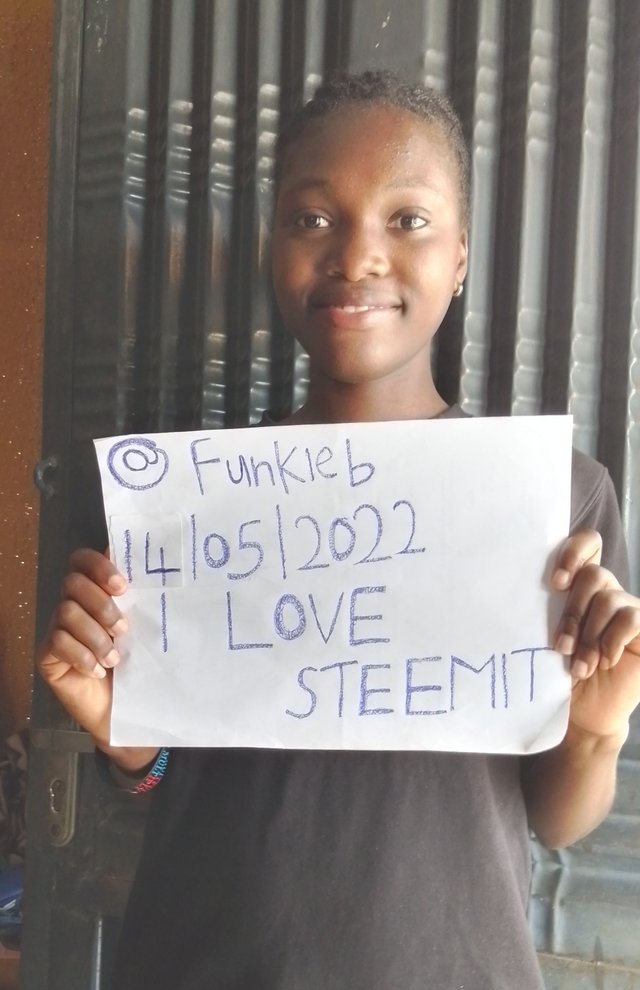 @ Funkieb
14/05/2022
I LOVE
STEEMIT